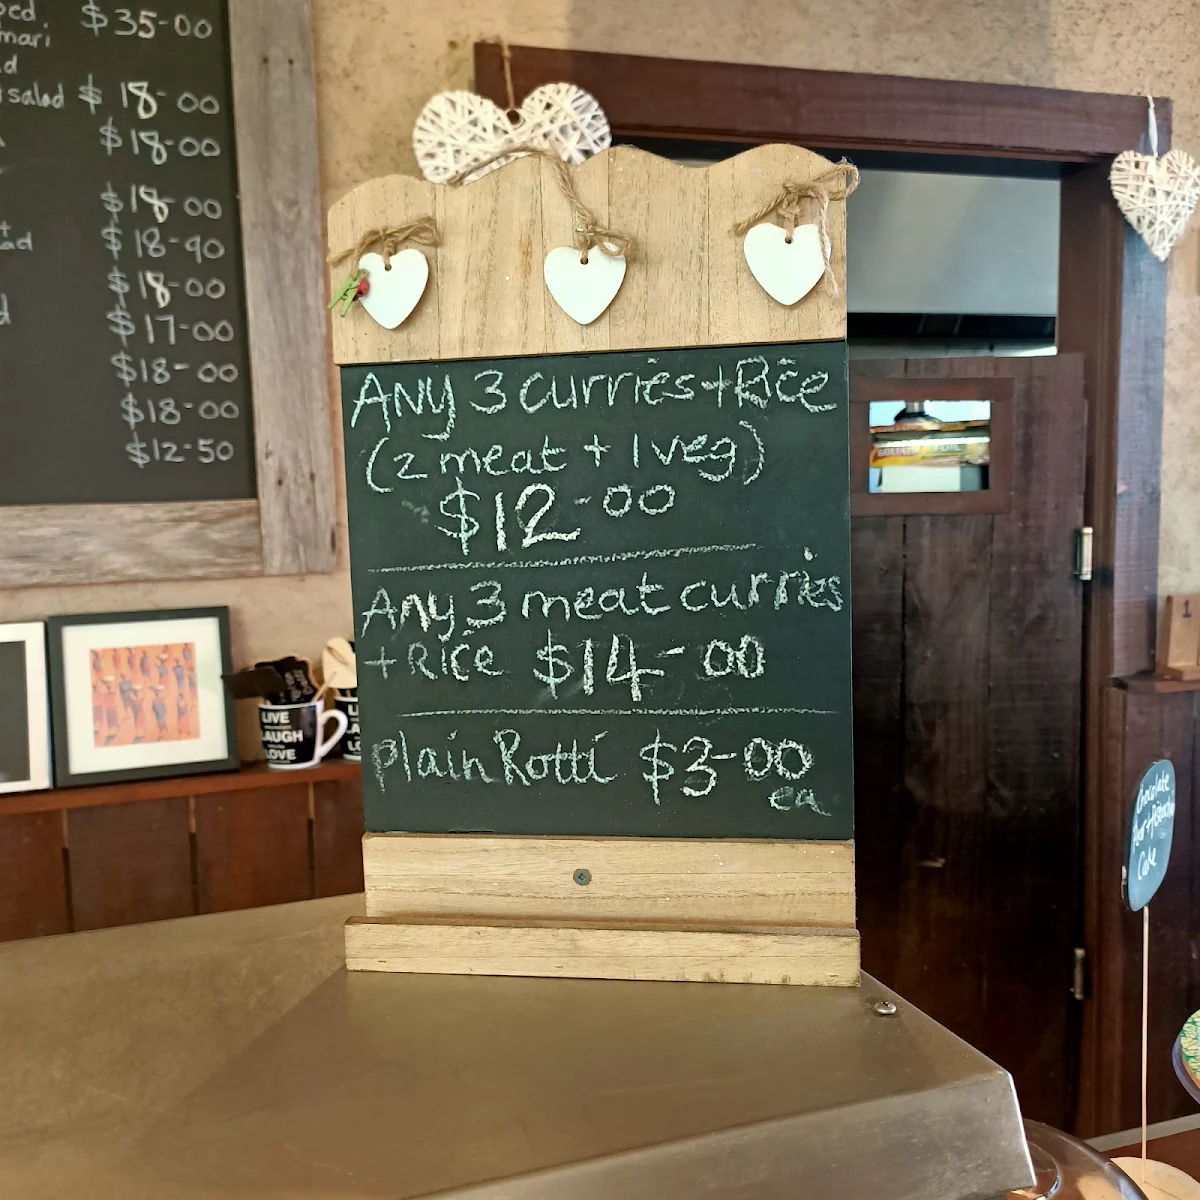 $35-00
salad $18-00
$18-00
$18-00
$18-90
$18-00
$17-00
$18-00
$18-00
$12-50
ANY 3 curries + Rice
(2 meat + 1 veg)
$12-00
Any 3 meat curries
+ Rice $14-00
Plain Rotti $3-00
ea
LIVE
LAUGH
LOVE
Chocolate
Pear + Pistachio
Cake
1